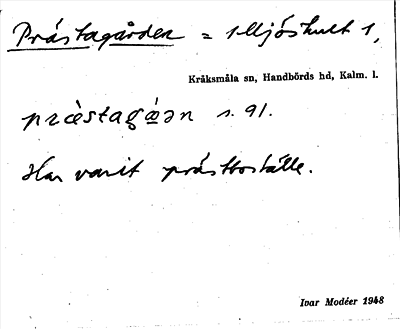 Prästagården = Mjöshult 1,
Kråksmåla sn, Handbörds hd, Kalm. l.
præ̀stagá̱ən s. 91.
Har varit prästboställe.
Ivar Modéer 1948